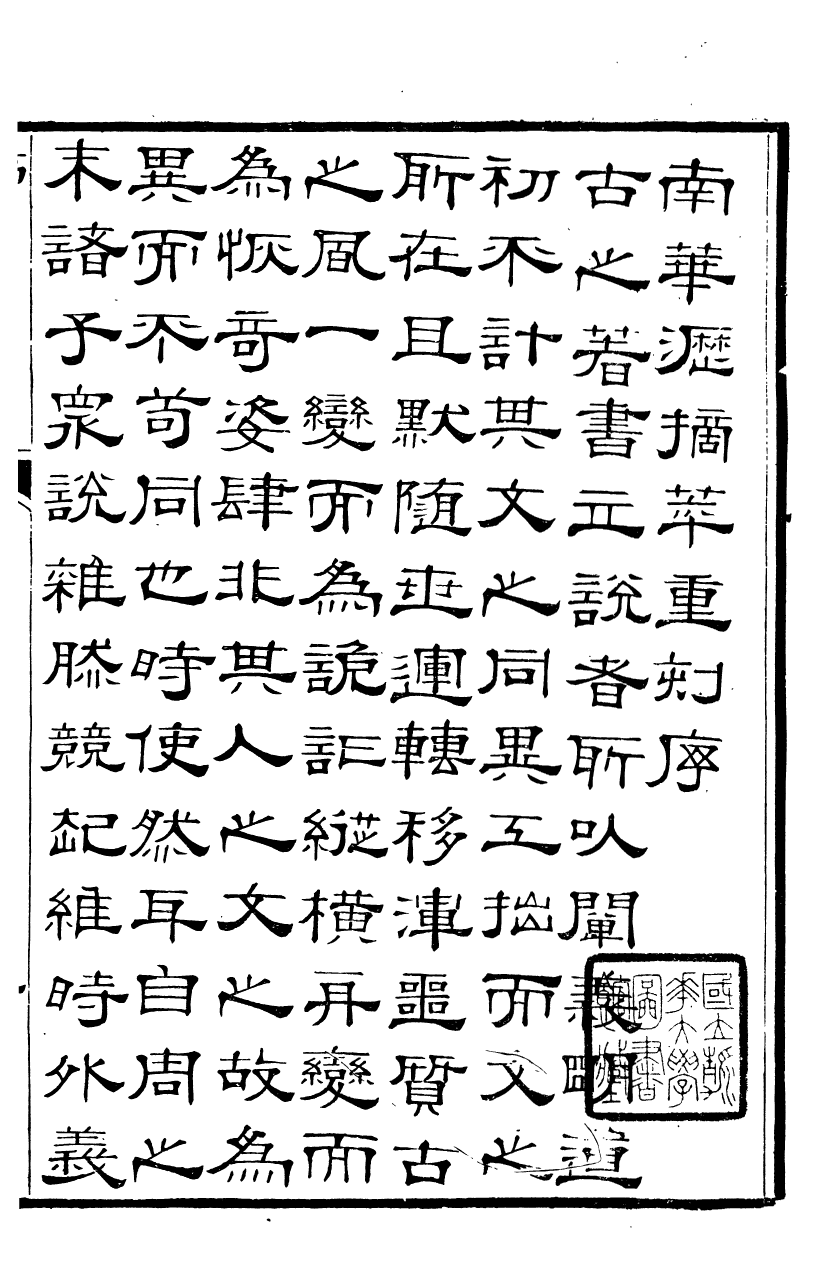 南華瀝摘萃重刻序
古之著書立說者所以闡義明道
初不計其文之同異工拙而文之
所在且默隨世運轉移渾噩質古
之風一變而為詭誕縱橫再變而
為恢奇姿肆非其人之文之故為
異而不苟同也時使然耳自周之
末諸子眾說雜然競起維時外義
國立清
華大學
圖書
館藏